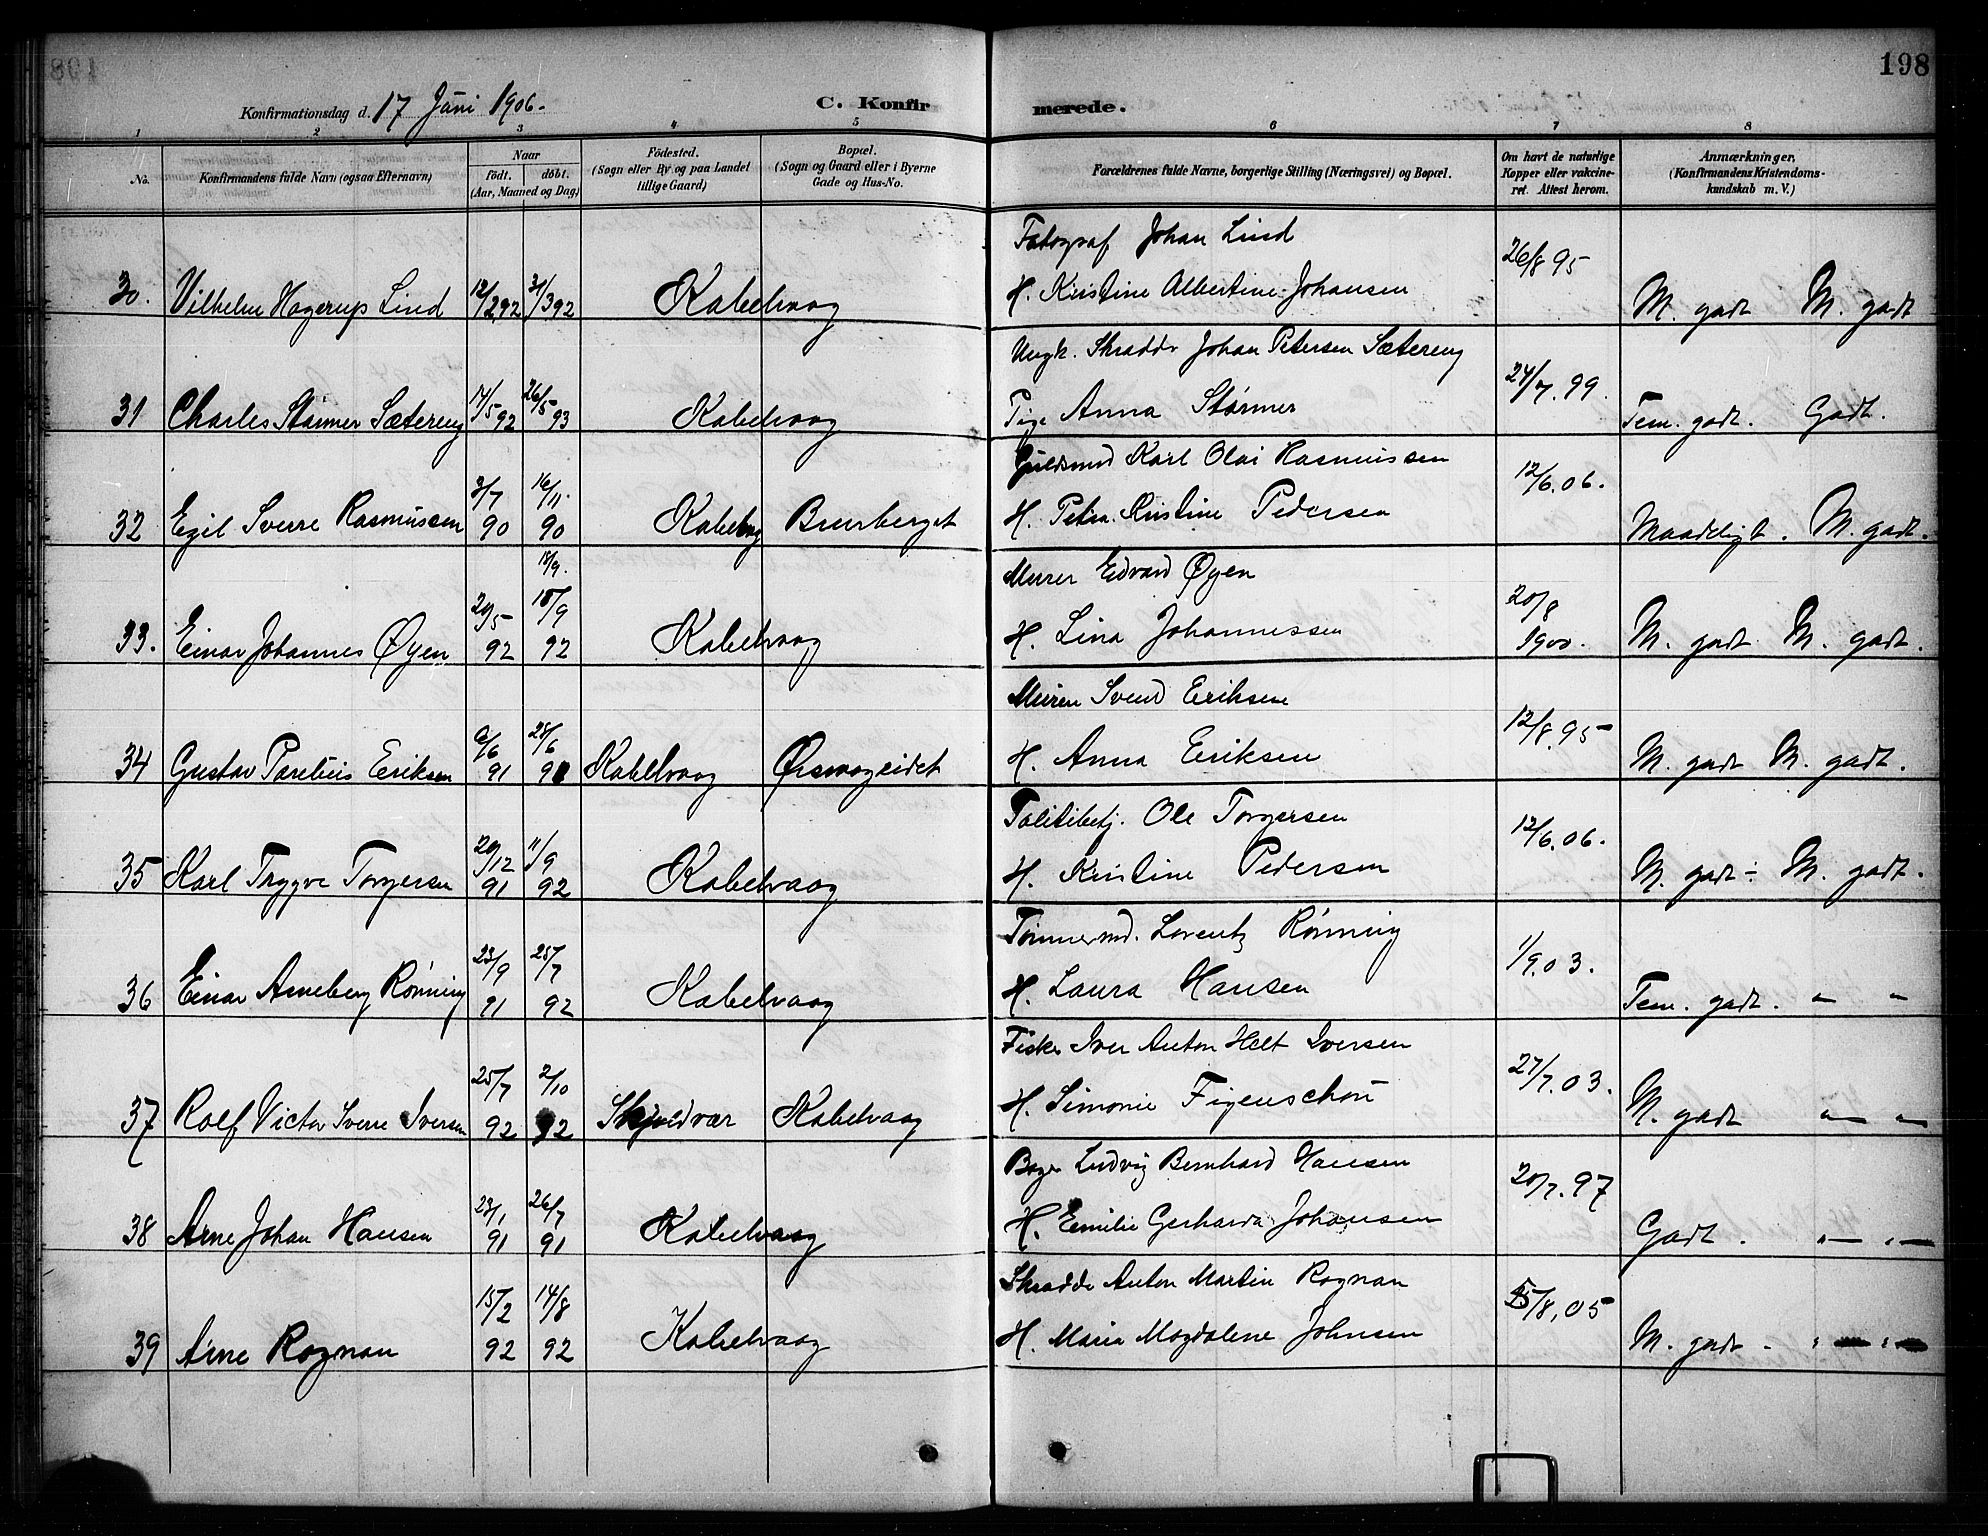 198
Konfirmationsdag d. 17 Juni 1906.
C. Konfirmerede.
1 2 3 4 5 6 7 8
No. Konfirmandens fulde Navn (ogsaa Efternavn)
Naar
født. døbt.
(Aar, Maaned og Dag)
Fødested.
(Sogn eller By og paa Landet
tillige Gaard)
Bopæl.
(Sogn og Gaard eller i Byerne
Gade og Hus-No.
Forældrenes fulde Navne, borgerlige Stilling (Næringsvei) og Bopæl.
Om havt de naturlige
Kopper eller vakcine-
ret. Attest herom.
Anmærkninger,
(Konfirmandens Kristendoms-
kundskab m. V.)
Fotograf Johan Lind
30. Vilhelm Hagerup Lind 12/2 92 31/3 92 Kabelvaag H. Kristine Albertine Johansen 26/8 95 M. godt M. godt
Ungk. Skrædder Johan Petersen Sætereng
31 Charles Størmer Sætereng 14/5 92 26/5 93 Kabelvaag Pige Anna Størmer 24/7. 99. Tem. godt. Godt.
Guldsmed Karl Olai Rasmussen
32 Egil Sverre Rasmussen 3/7 90 16/11. 90 Kabelvaag Bursberget H. Petra Kristine Pedersen 12/6. 06. Maadeligt. M. godt.
Murer Edvard Øyen
33. Einar Johannes Øyen 29/5 92 18/9 92 Kabelvaag H. Lina Johannessen 20/8 1900. M. godt M. godt.
Murer Svend Eriksen
34 Gustav Parelius Eriksen 9/6 91 28/6 91 Kabelvaag Ørsvaageidet H. Anna Eriksen 12/8. 95 M. godt M. godt.
Politibetj. Ole Torgersen
35 Karl Trygve Torgersen 20/12 91 11/9 92 Kabelvaag H. Kristine Pedersen 12/6. 06. M. godt ÷ M. godt.
Tømmermd. Lorentz Rønning
36 Einar Arneberg Rønning 23/9 91 25/7 92 Kabelvaag H. Laura Hansen 1/9. 03. Tem. godt. " "
Fisker Iver Anton Helt Iversen
37 Rolf Victor Sverre Iversen 25/7 92 2/10 92 Skjoldvær Kabelvaag H. Simonie Figenschou 27/7. 03. M. godt " "
Bager Ludvig Bernhard Hansen
38 Arne Johan Hansen 23/1 91 26/7 91 Kabelvaag H. Emilie Gerharda Johansen 20/7. 97 Godt. " "
Skrædder Anton Martin Rognan
39 Arne Rognan 15/2 92 14/8 92 Kabelvaag H. Maria Magdalene Johnsen 5/8. 05 M. godt.